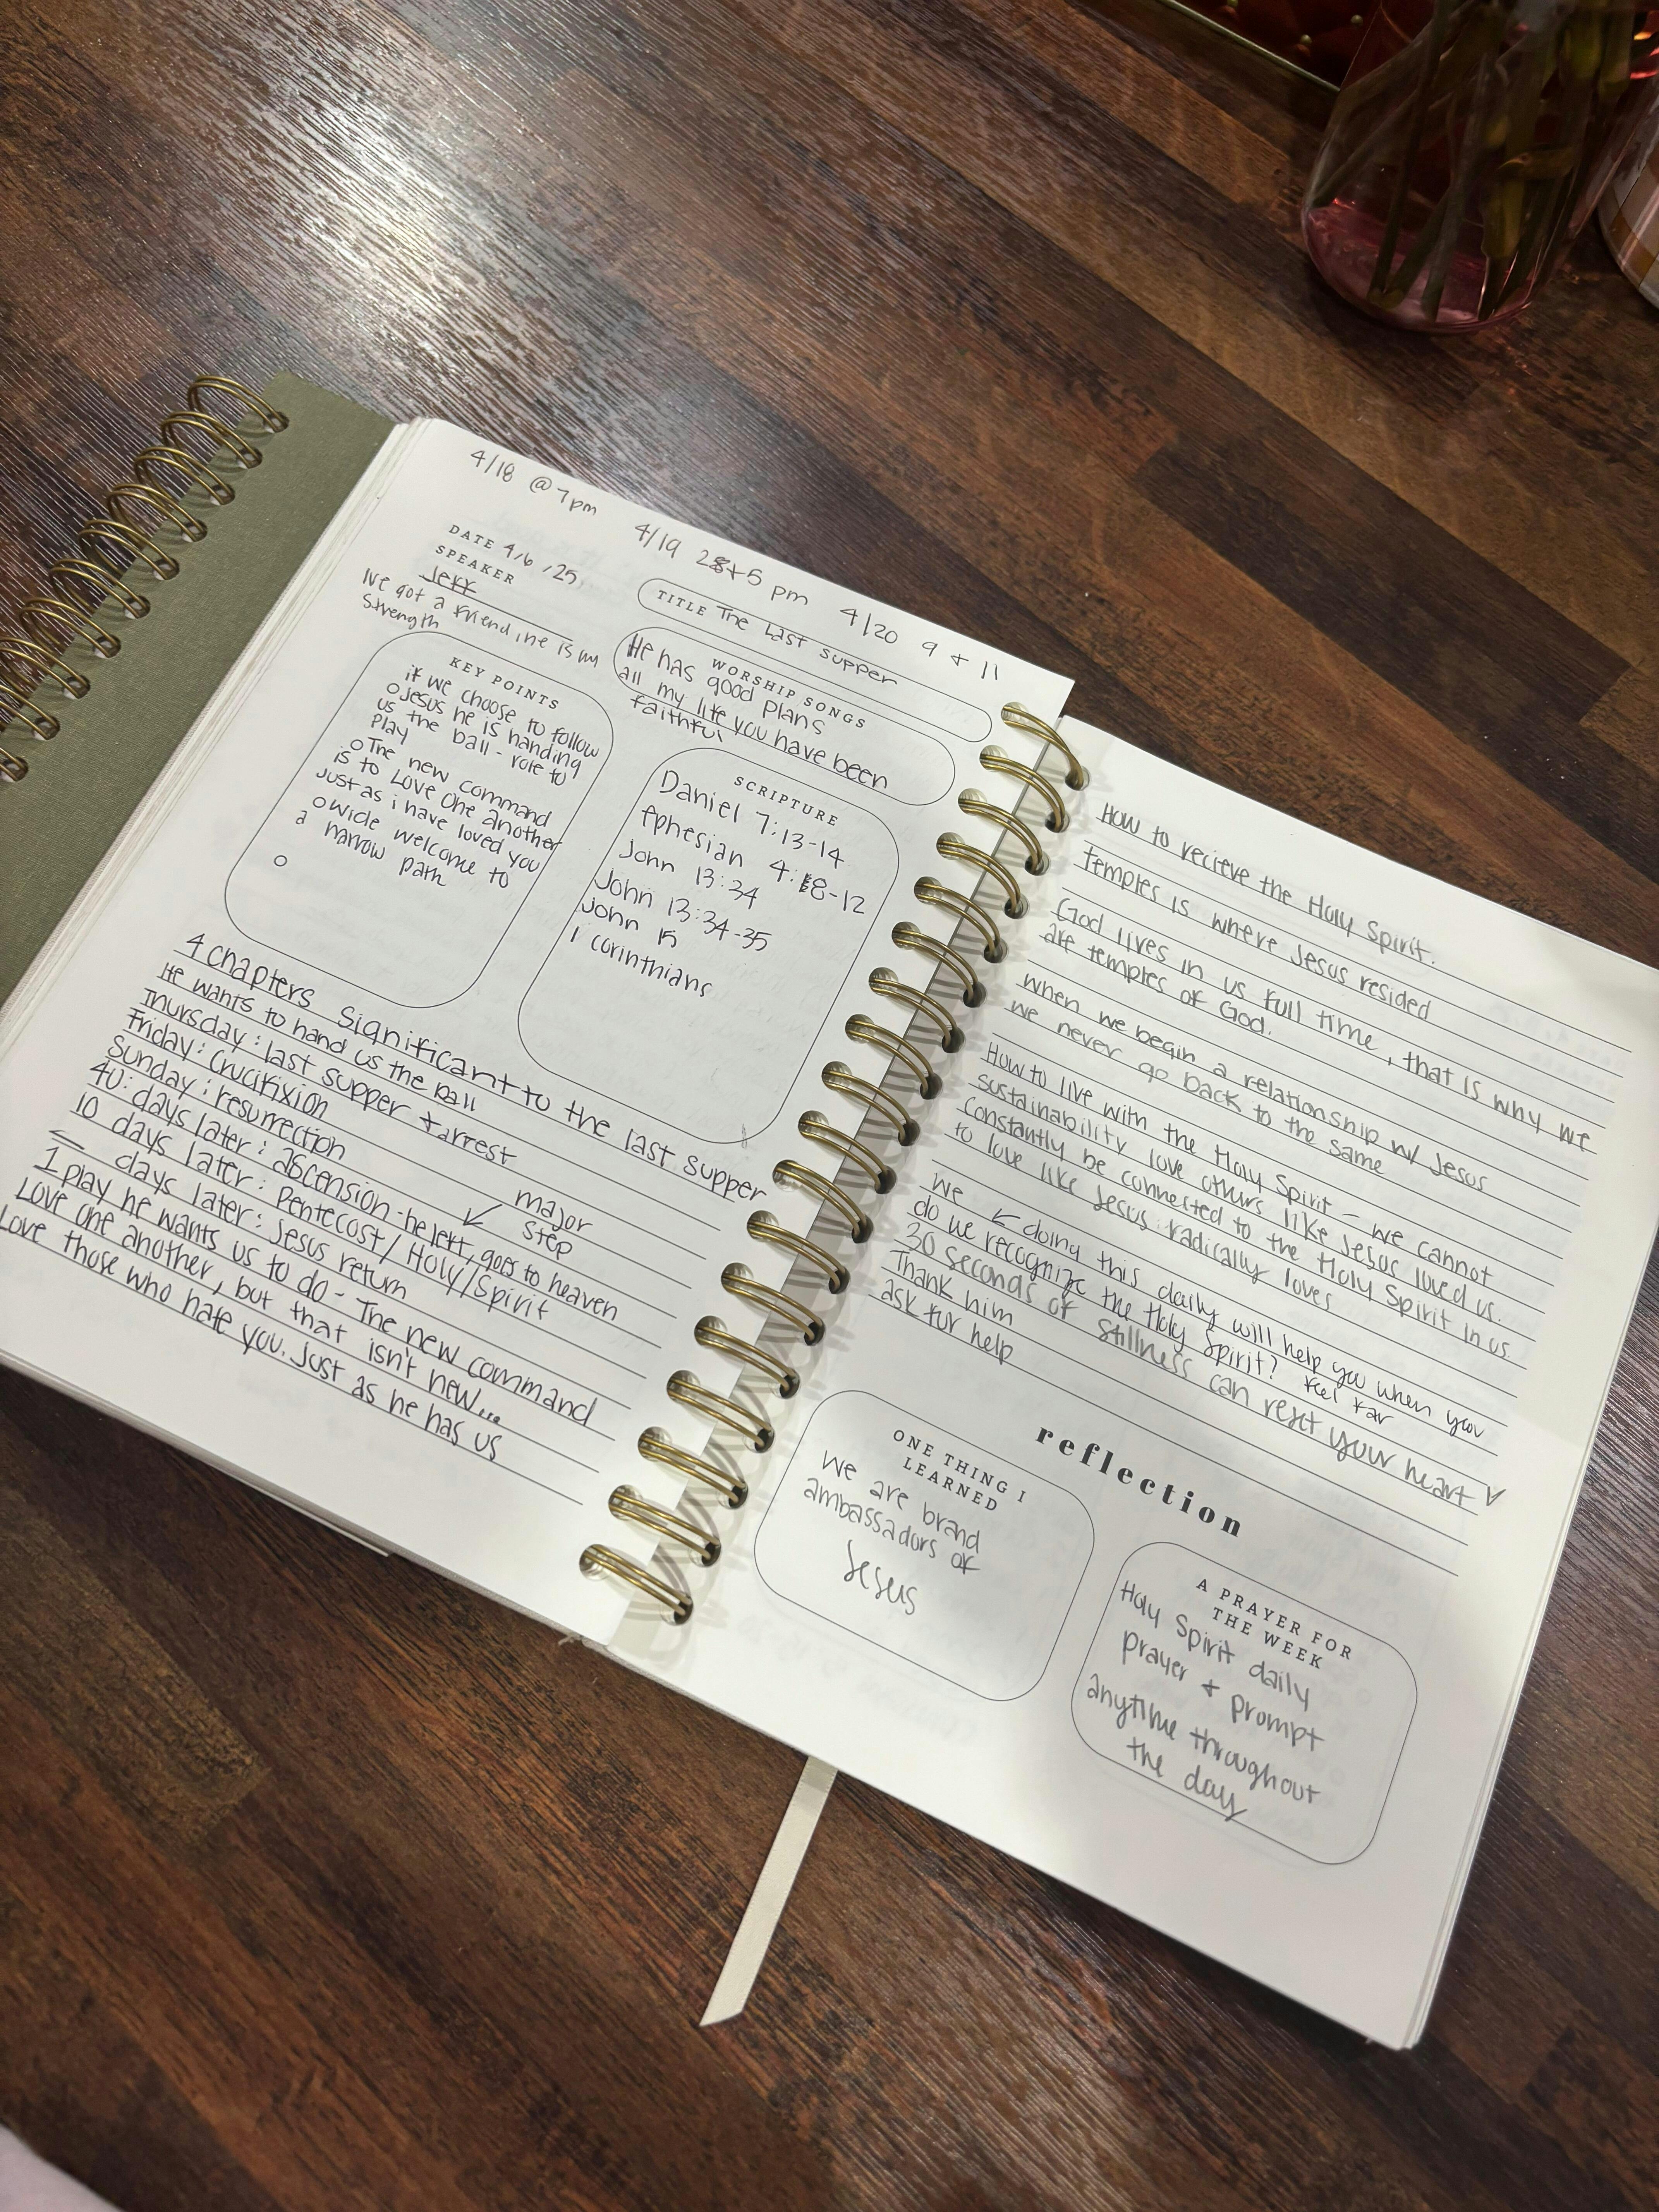 4/18 @ 7pm 4/19 2 & 5 pm 4/20 9 + 11
DATE 4/6/25
SPEAKER
Jeff
I've got a friend, he is my
strength
TITLE The Last supper
WORSHIP SONGS
He has good plans
all my life you have been
faithful
KEY POINTS
if we choose to follow
Jesus he is handing
us the ball - role to
play
The new command
is to Love one another
just as i have loved you
wide welcome to
a narrow path
SCRIPTURE
Daniel 7:13-14
Ephesian 4:8-12
John 13:34
John 13:34-35
John 15
1 corinthians
4 chapters significant to the last supper
He wants to hand us the ball
Thursday: last supper + arrest
Friday: crucifixion
Sunday: resurrection
40: days later: ascension - he left, goes to heaven
major
step
10 days later: Pentecost / Holy/Spirit
days later: Jesus return
1 play he wants us to do - The new command
Love one another, but that isn't new...
Love those who hate you. Just as he has us
How to recieve the Holy Spirit.
temples is where Jesus resided
God lives in us full time, that is why we
are temples of God.
when we begin a relationship w/ Jesus
we never go back to the same
How to live with the Holy Spirit - we cannot
sustainability love others like Jesus loved us.
constantly be connected to the Holy Spirit in us
to love like Jesus radically loves
We ← doing this daily will help you when you
feel far
do we recognize the Holy Spirit?
30 seconds of stillness can reset your heart
Thank him
ask for help
reflection
ONE THING I
LEARNED
We are brand
ambassadors of
Jesus
A PRAYER FOR
THE WEEK
Holy Spirit daily
prayer + prompt
anytime throughout
the day